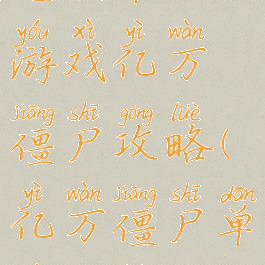 yóu xì yì wàn
游戏亿万
jiāng shī gōng lüè
僵尸攻略(
yì wàn jiāng shī dān
亿万僵尸单